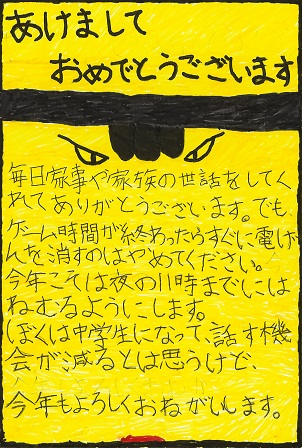 あけまして
おめでとうございます
毎日家事や家族の世話をしてく
れてありがとうございます。でも、
ゲーム時間が終わったらすぐに電げ
んを消すのはやめてください。
今年こそは夜の11時までには
ねむるようにします。
ぼくは中学生になって、話す機
会が減るとは思うけど、
今年もよろしくおねがいします。